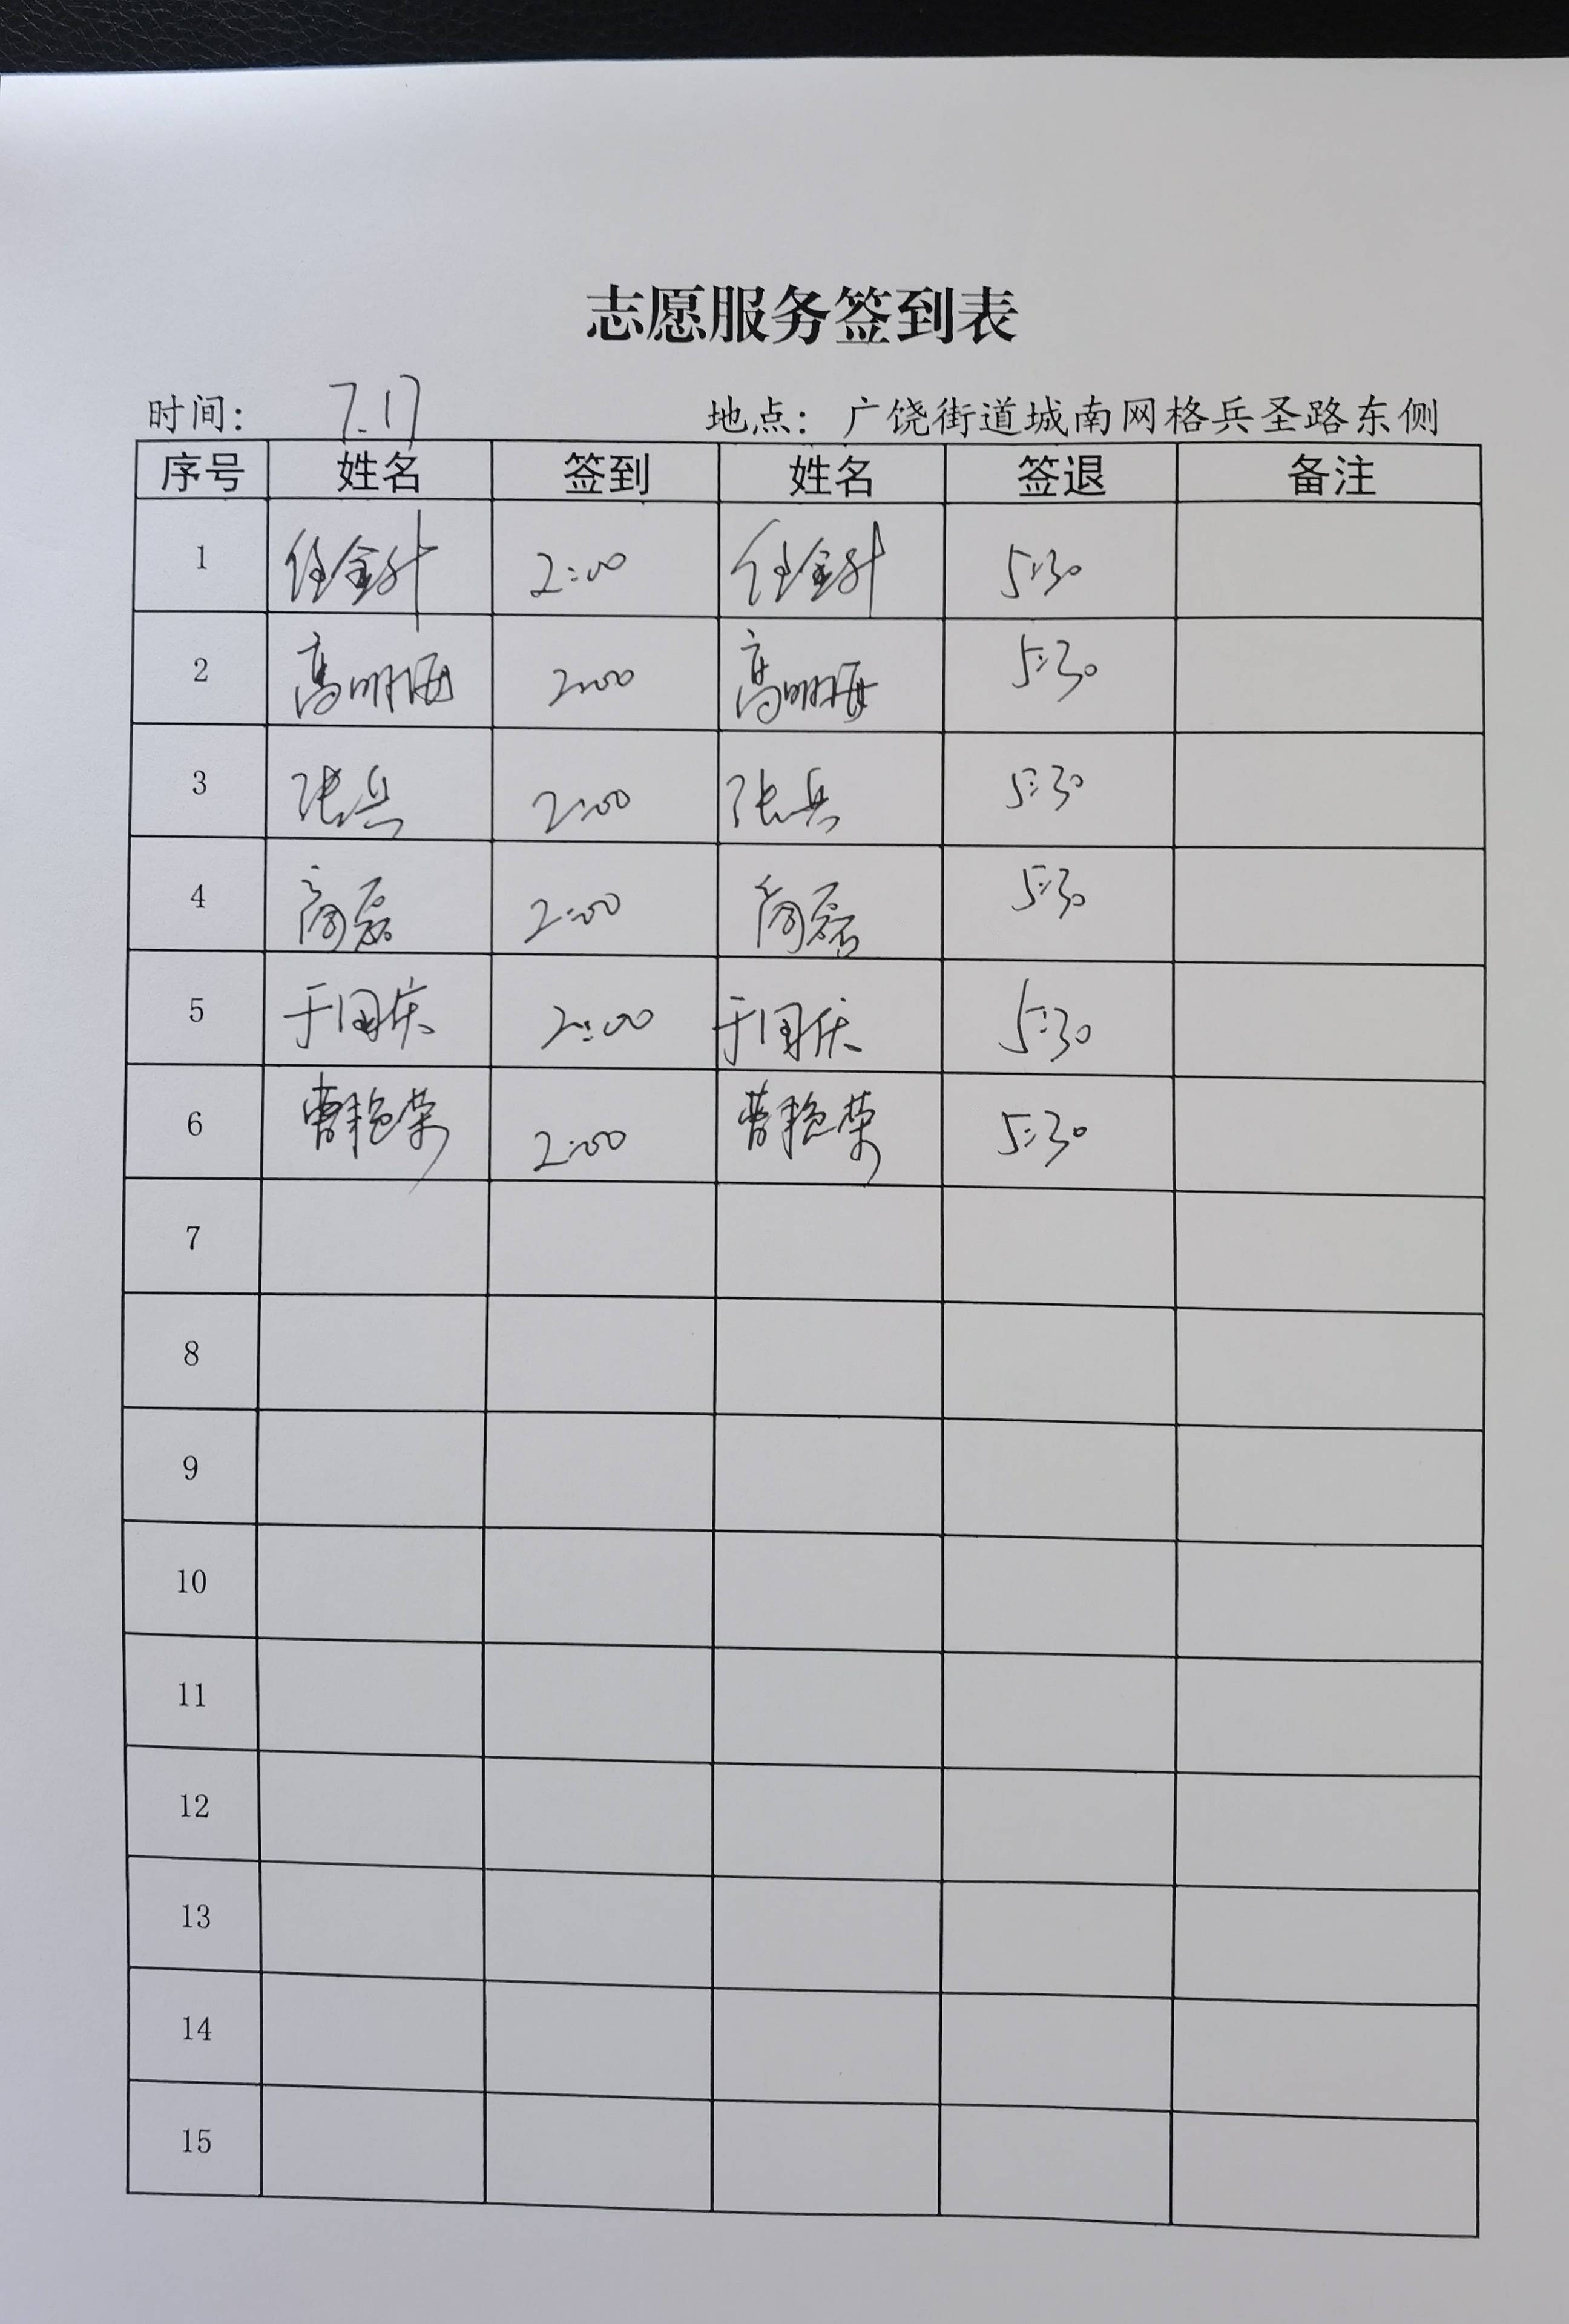 志愿服务签到表
时间： 7.17 地点：广饶街道城南网格兵圣路东侧
序号 姓名 签到 姓名 签退 备注
1 任金升 2:00 任金升 5:30
2 高明海 2:00 高明海 5:30
3 张兵 2:00 张兵 5:30
4 商磊 2:00 商磊 5:30
5 于国庆 2:00 于国庆 5:30
6 曹艳荣 2:00 曹艳荣 5:30
7
8
9
10
11
12
13
14
15